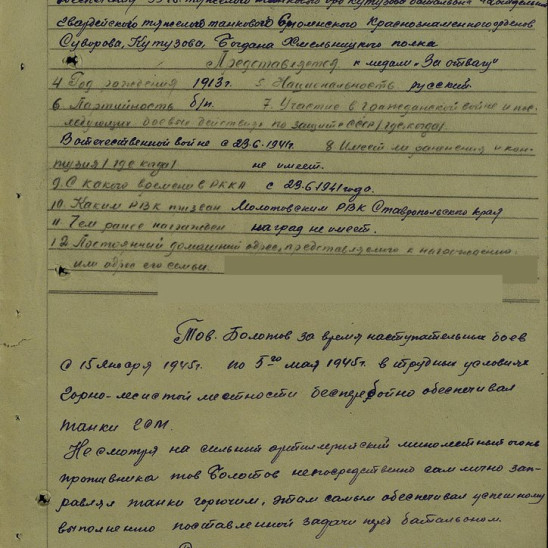 Гвардейского тяжелого танкового Краснознаменного орденов
Суворова, Кутузова, Богдана Хмельницкого полка
Представляется к медали „За отвагу"
4. Год рождения 1913г. 5. Национальность русский.
6. Партийность б/п. 7. Участие в гражданской войне и пос-
ледующих боевых действиях по защите СССР /где, когда/
В отечественной войне с 23.6.1941г. 8. Имеет ли ранения и кон-
тузия /где когда/ не имеет.
9. С какого времени в РККА с 23.6.1941 года.
10. Каким РВК призван Молотовским РВК Ставропольского края
11. Чем ранее награжден наград не имеет.
12. Постоянный домашний адрес, представляемого к награждению
или адрес его семьи.
Тов. Болотов за время наступательных боев
с 15 Января 1945г. по 5го мая 1945г. в трудных условиях
Горно-лесистой местности бесперебойно обеспечивал
танки ГСМ.
Несмотря на сильный артиллерийский минометный огонь
противника тов Болотов непосредственно сам лично зап-
равлял танки горючим, этим самым обеспечивал успешному
выполнению поставленной задачи перед батальоном.